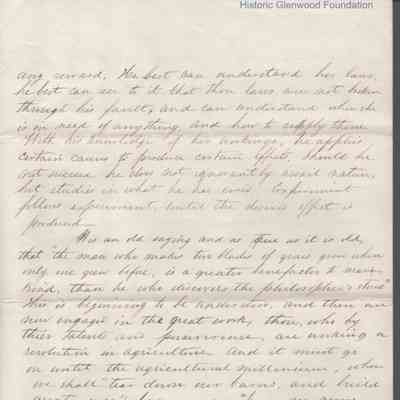 Historic Glenwood Foundation
any reward. He best can understand her laws,
he best can see to it that then laws are not broken
through his fault, and can understand when she
is in need of anything, and how to supply them
With his knowledge of her workings, he applies
certain causes to produce certain effects, should he
not succeed he does not ignorantly assail nature,
but studies in what he has erred. Experiment
follows experiment, until the desired effect is
produced—
It is an old saying and as true as it is old,
that "the man who makes two blades of grass grow when
only one grew before, is a greater benefactor to man-
kind, than he who discovers the philosopher's stone"
This is beginning to be understood, and there are
now engaged in the great work, those, who by
their talent and perseverance, are making a
revolution in agriculture. And it must go
on until the agricultural millennium, when
we shall "tear down our barns, and build